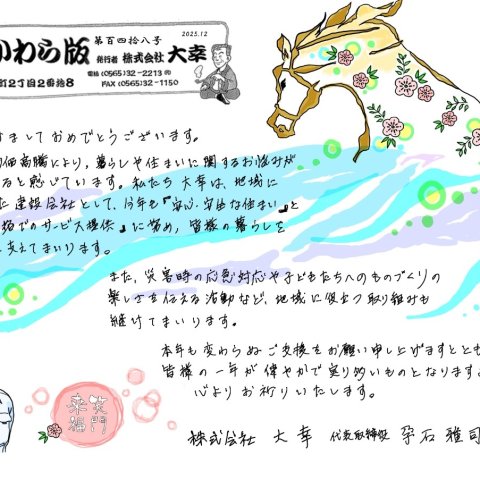 かわら版
第百四十八号
2025.12
発行者 株式会社 大幸
町2丁目2番地8
電話(0565)32-2213㈹
FAX(0565)32-1150
ましておめでとうございます。
価高騰により、暮らしや住まいに関するお悩みが
ると感じています。私たち 大幸は、地域に
た建設会社として、今年も『安心・安全な住まい』と
価格でのサービス提供』に努め、皆様の暮らしを
支えてまいります。
また、災害時の応急対応や子どもたちへのものづくりの
楽しさを伝える活動など、地域に役立つ取り組みも
続けてまいります。
本年も変わらぬご支援をお願い申し上げますととも
皆様の一年が健やかで実り多いものとなりますよ
心よりお祈りいたします。
笑門来福
株式会社 大幸 代表取締役 石 雅司